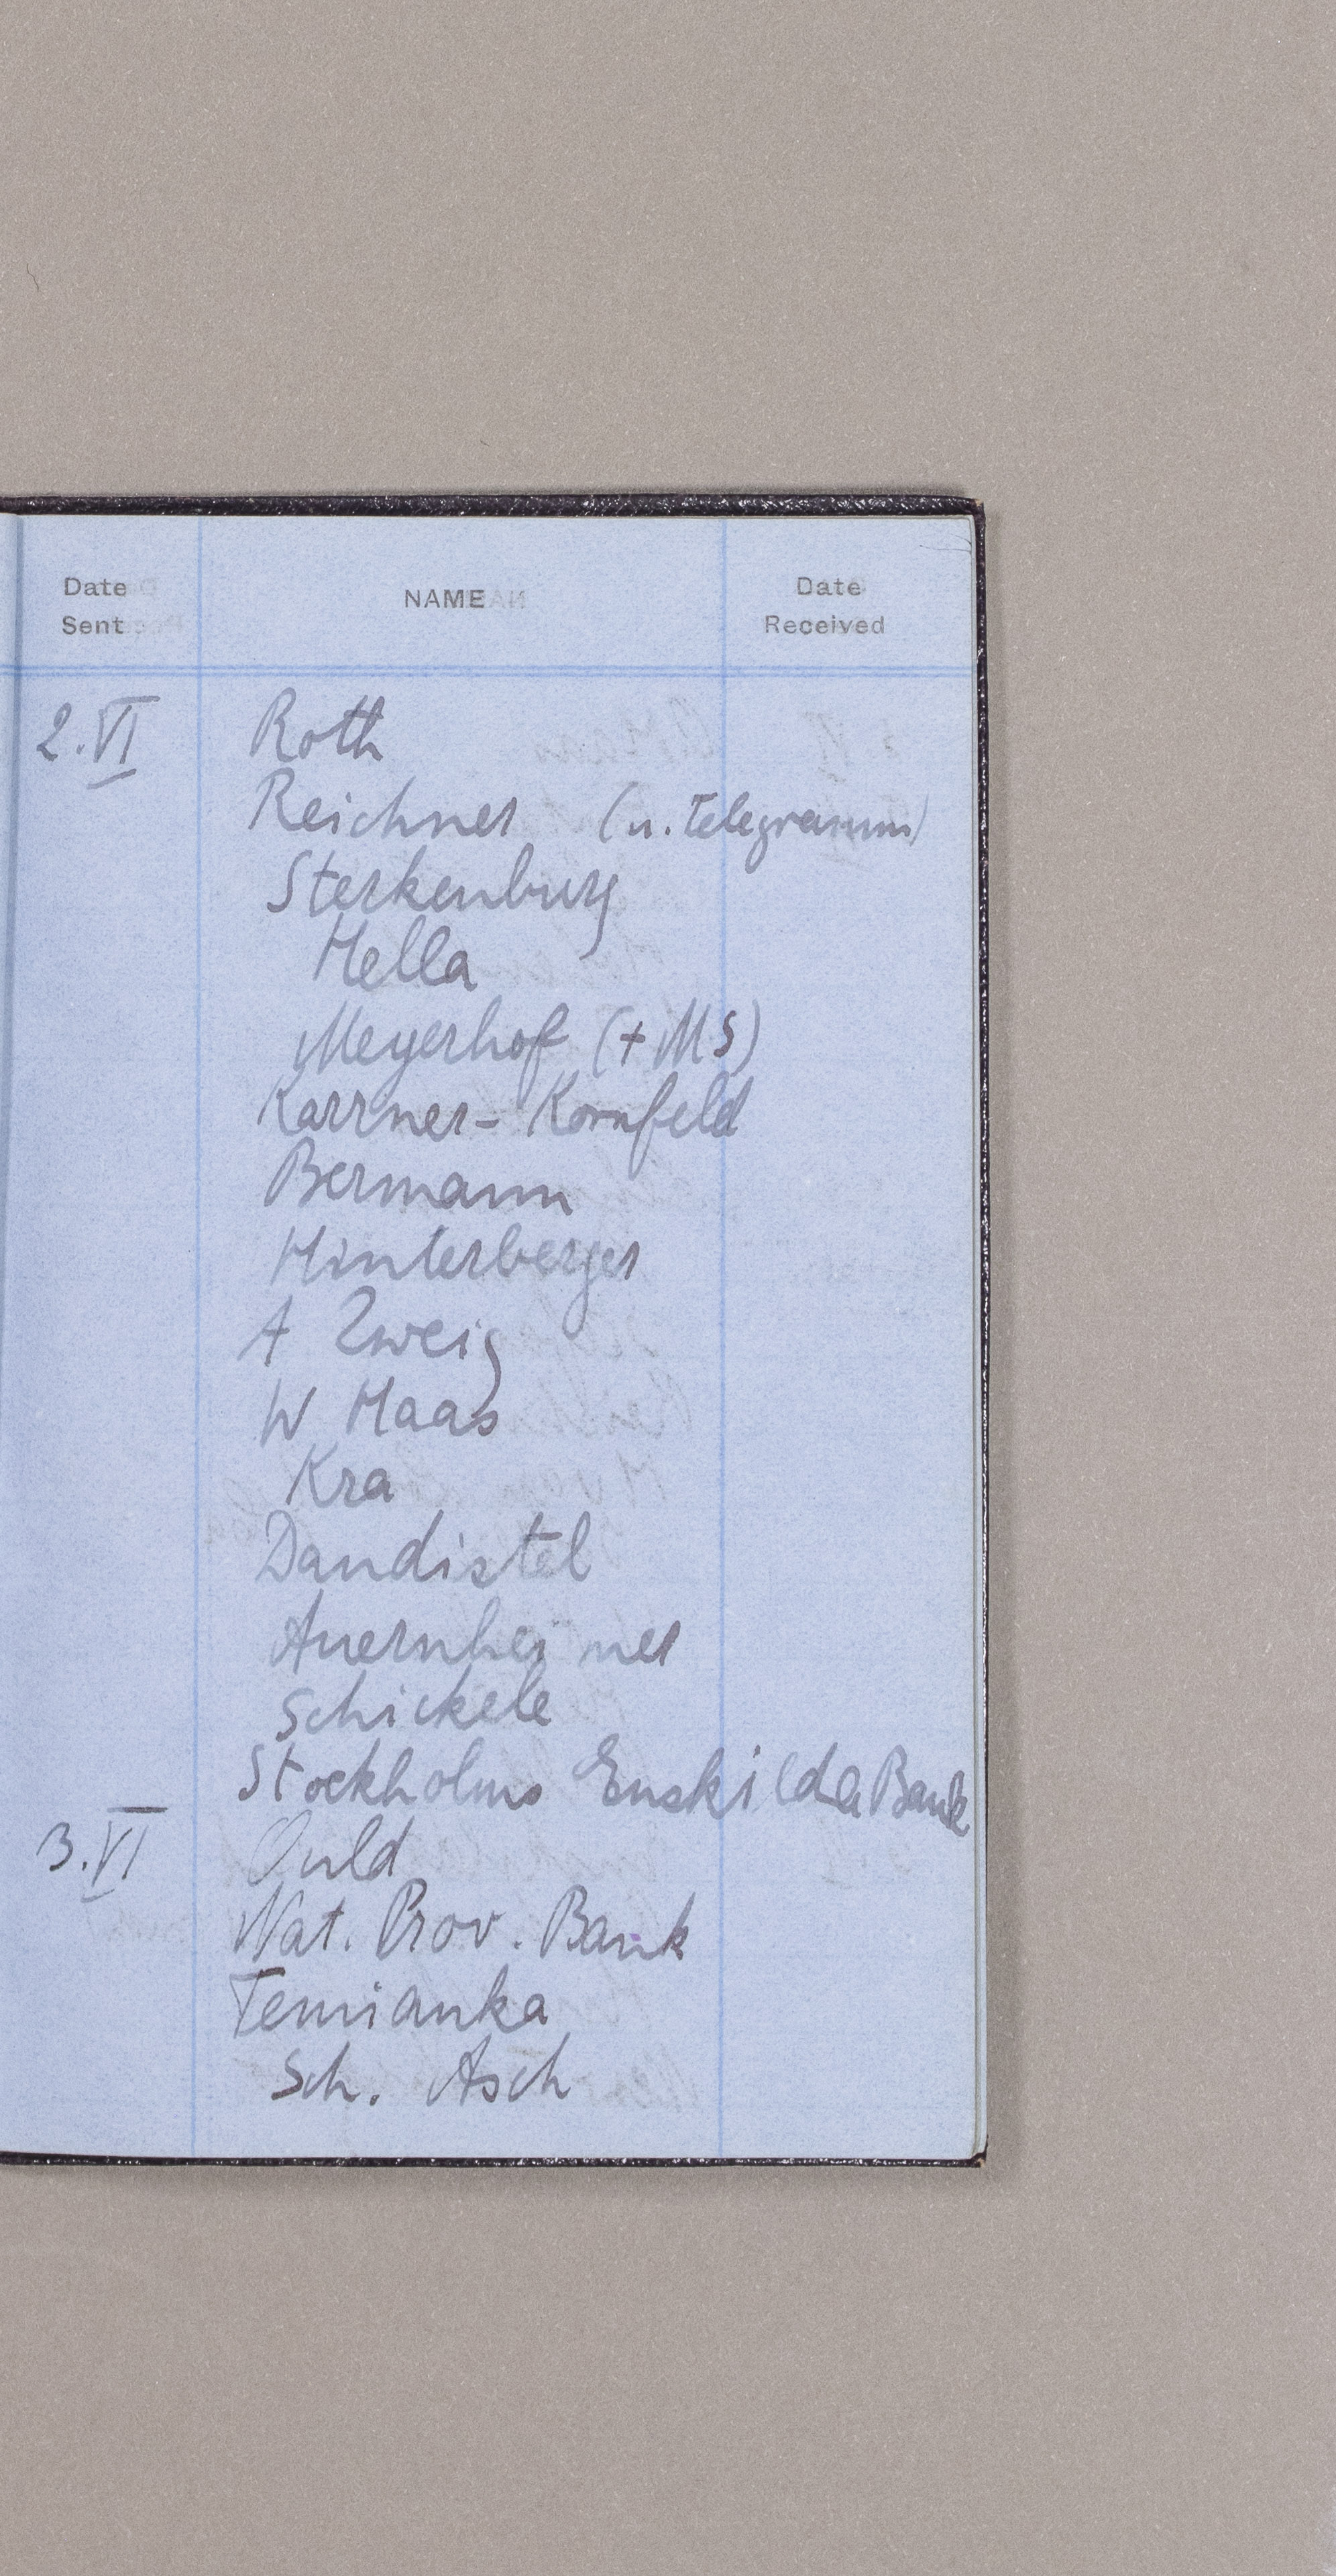 Date Sent NAME Date Received
2.VI Roth
Reichner (u. Telegramm)
Sterkenburg
Hella
Meyerhof (+ MS)
Karrner- Kornfeld
Bermann
Hinterberger
A Zweig
W Haas
Kra
Dandistel
Auernheimer
Schickele
Stockholms Enskilda Bank
3.VI Ould
Nat. Prov. Bank
Temianka
Sch. Asch